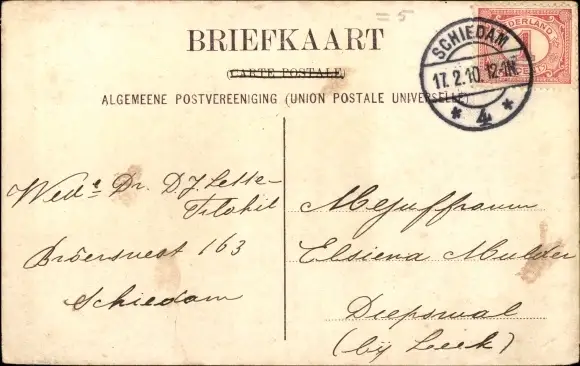 = 5
BRIEFKAART
CARTE POSTALE
ALGEMEENE POSTVEREENIGING (UNION POSTALE UNIVERSELLE)
NEDERLAND
SCHIEDAM
17. 2.10. 12-1N.
* 4 *
Wede Dr. D.J. Lette-
Broersvest 163
Schiedam
Mejuffrouw
Elsiena Mulder
Diepswal
(bij Leek)